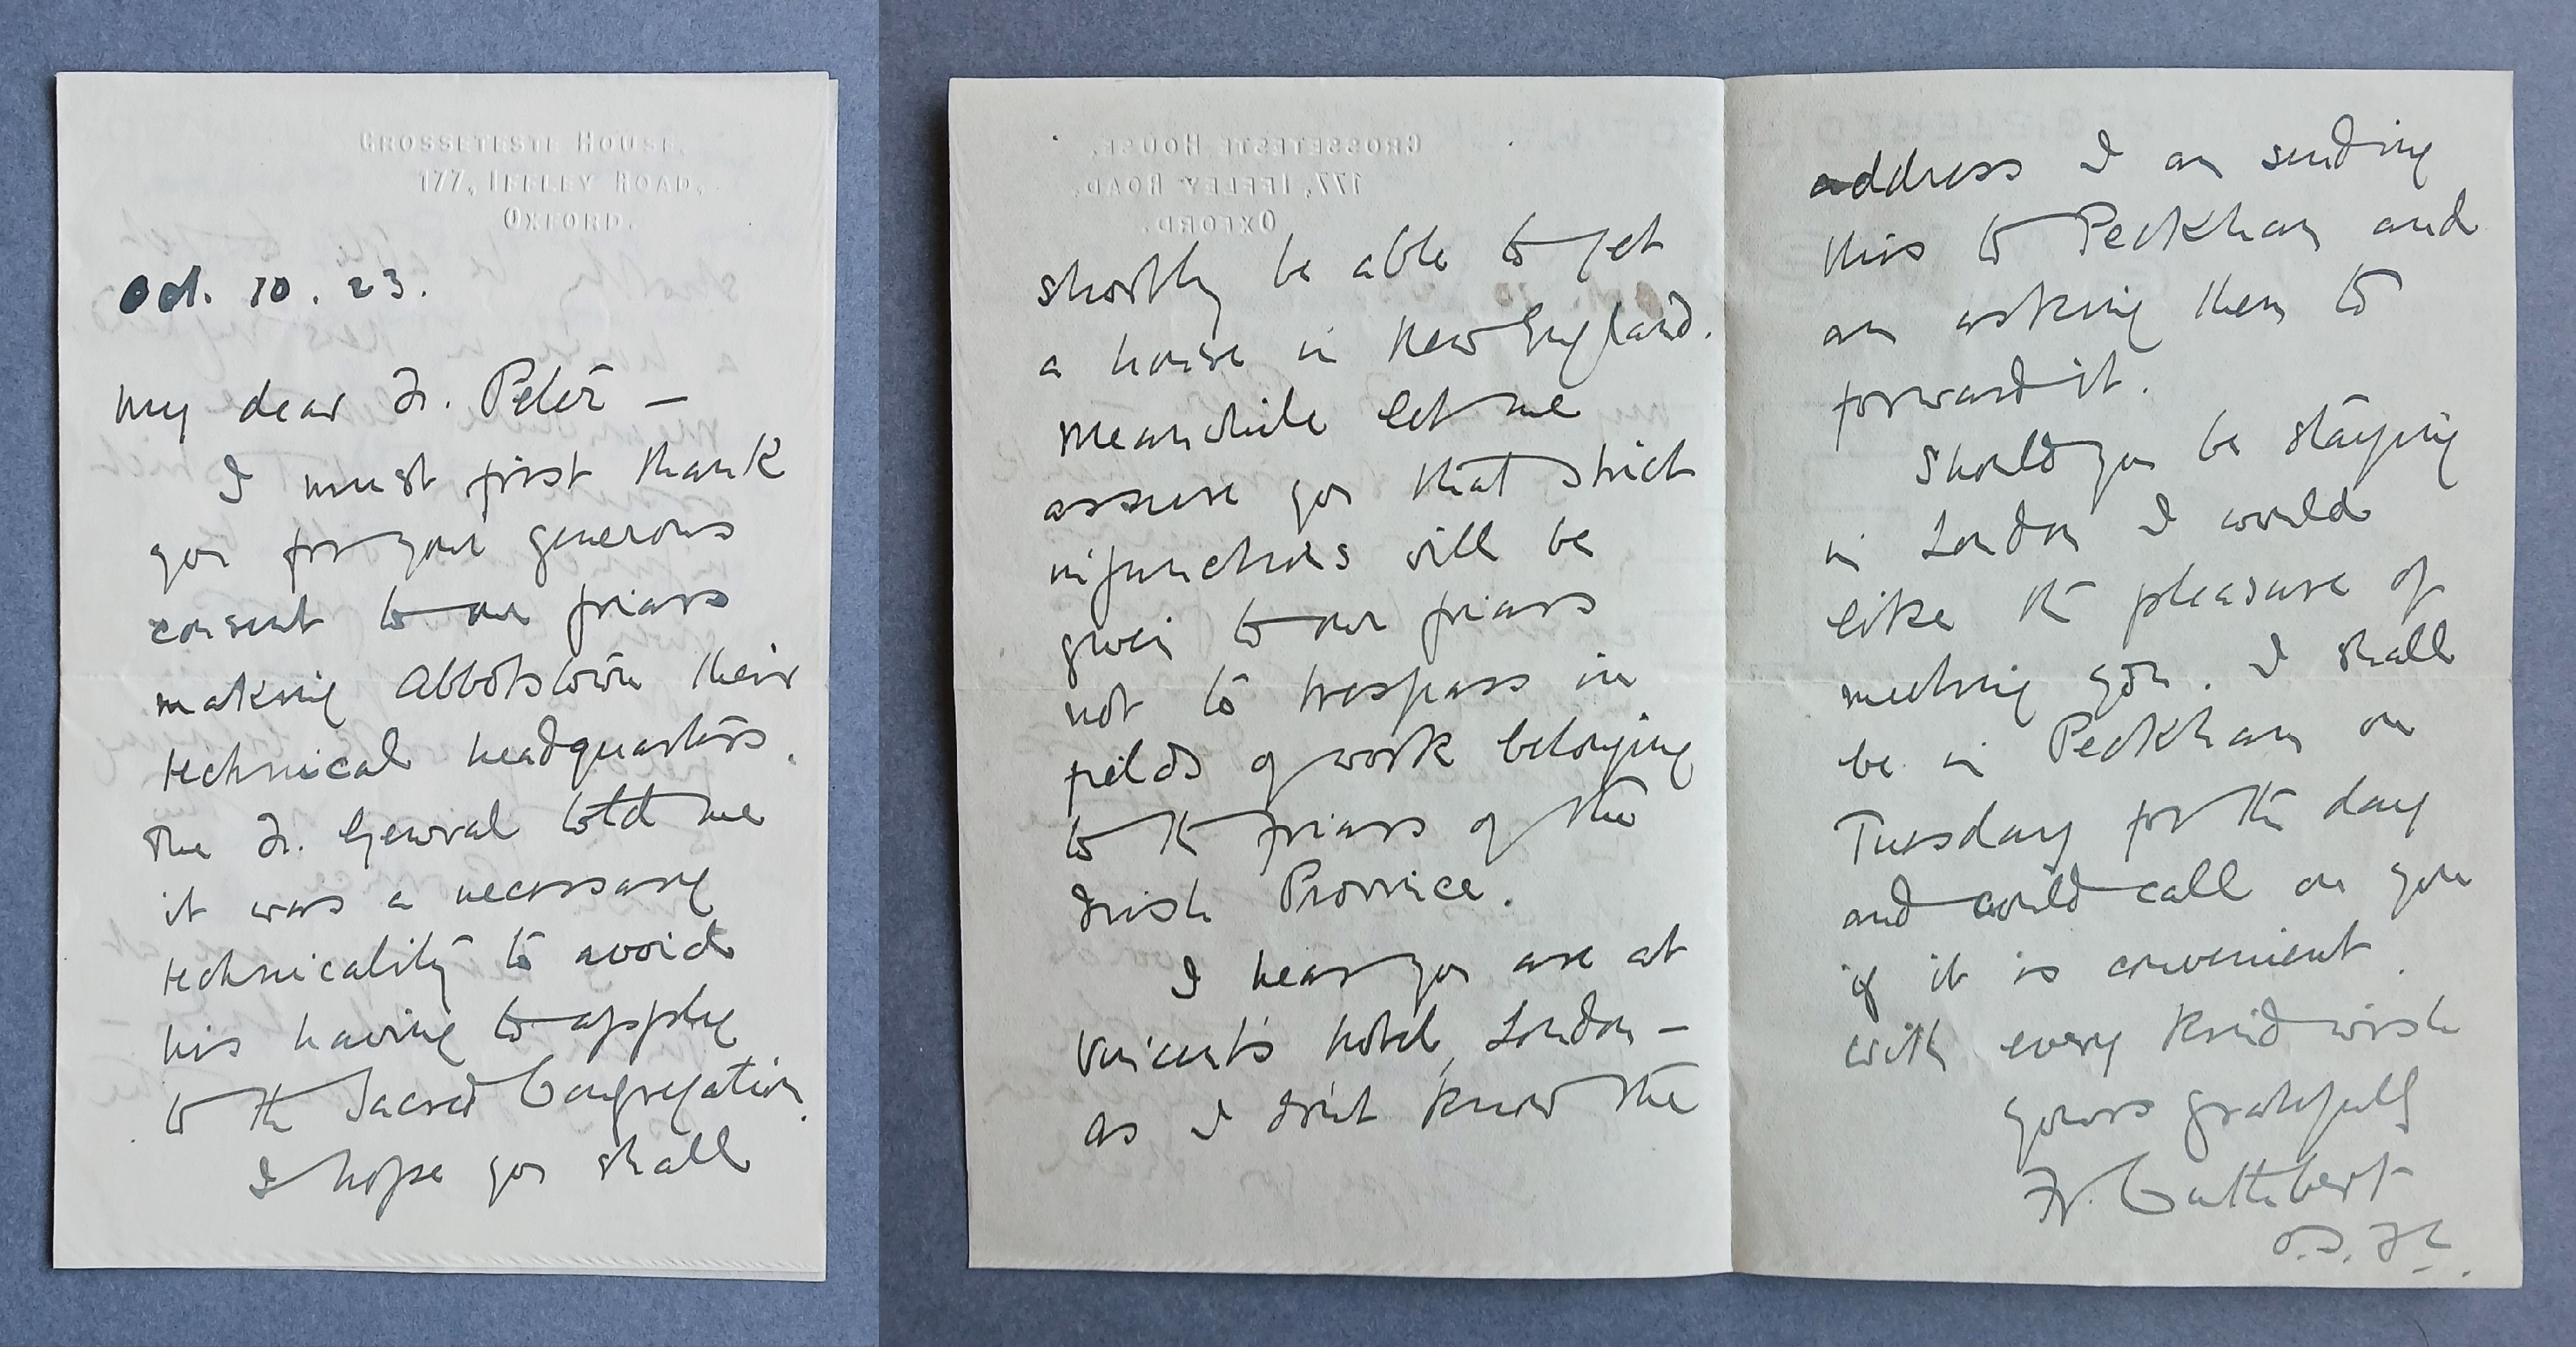 GROSSETESTE HOUSE,
177, IFFLEY ROAD,
OXFORD.
Oct. 10. 23.
My dear Fr. Peter —
I must first thank
you for your generous
consent to our friars
making Abbotstown their
technical headquarters.
The Fr. General told me
it was a necessary
technicality to avoid
his having to apply
to the Sacred Congregation.
I hope you shall
shortly be able to get
a house in New England.
Meanwhile let me
assure you that strict
injunctions will be
given to our friars
not to trespass in
fields of work belonging
to the friars of the
Irish Province.
I hear you are at
Vincent's hotel, London —
as I don't know the
address I am sending
this to Peckham and
am asking them to
forward it.
Should you be staying
in London I would
like the pleasure of
meeting you. I shall
be in Peckham on
Tuesday for the day
and could call on you
if it is convenient.
With every kind wish
yours gratefully
Fr. Cuthbert
O.S.F.C.